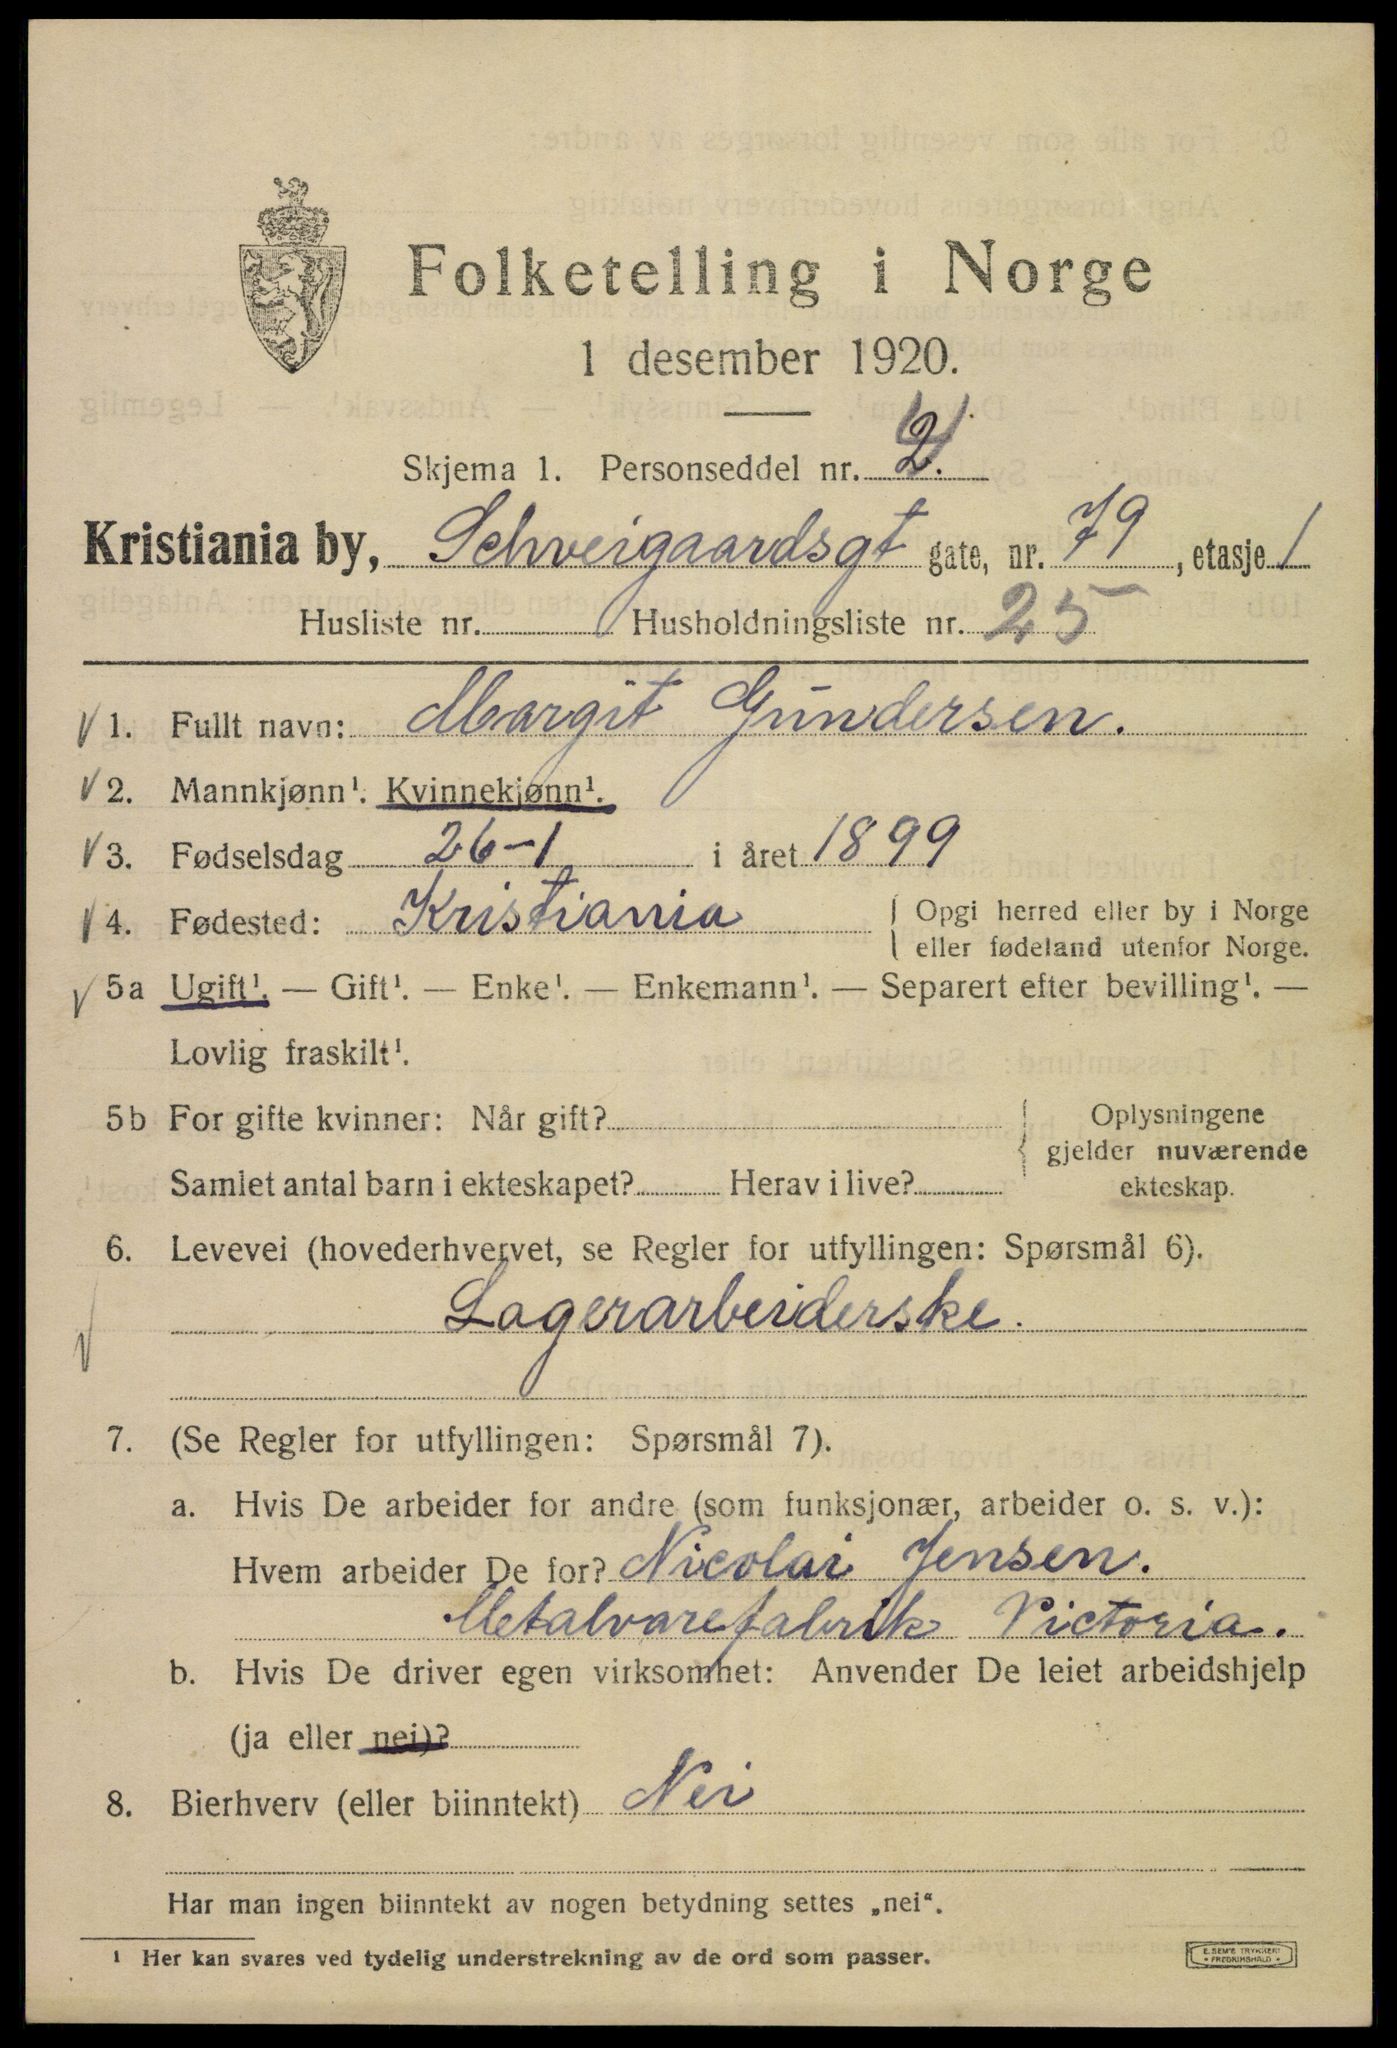 Folketelling i Norge
1 desember 1920.
Skjema 1. Personseddel nr.
Kristiania by, Schveigaardsgt gate, nr. 79, etasje 1
Husliste nr. Husholdningsliste nr. 25
1. Fullt navn: Margit Gundersen.
2. Mannkjønn¹. Kvinnekjønn¹.
3. Fødselsdag 26-1 i året 1899
4. Fødested: Kristiania { Opgi herred eller by i Norge
eller fødeland utenfor Norge.
5a Ugift¹. — Gift¹. — Enke¹. — Enkemann¹. — Separert efter bevilling¹. —
Lovlig fraskilt¹.
5b For gifte kvinner: Når gift? { Oplysningene
gjelder nuværende
ekteskap.
Samlet antal barn i ekteskapet? Herav i live?
6. Levevei (hovederhvervet, se Regler for utfyllingen: Spørsmål 6).
Lagerarbeiderske.
7. (Se Regler for utfyllingen: Spørsmål 7).
a. Hvis De arbeider for andre (som funksjonær, arbeider o. s. v.):
Hvem arbeider De for? Nicolai Jensen.
Metalvarefabrik Victoria.
b. Hvis De driver egen virksomhet: Anvender De leiet arbeidshjelp
(ja eller nei)?
8. Bierhverv (eller biinntekt) Nei
Har man ingen biinntekt av nogen betydning settes „nei“.
¹ Her kan svares ved tydelig understrekning av de ord som passer.
E. SEM'S TRYKKERI
• FREDRIKSHALD •